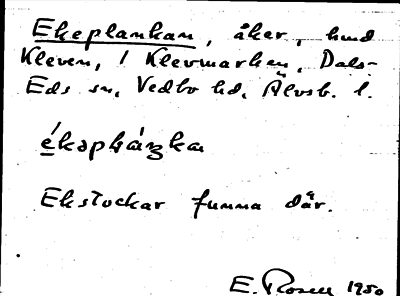 Ekeplankan, åker, hmd
Kleven, 1 Klevmarken, Dals-
Eds sn, Vedbo hd, Älvsb. l.
ékəplaŋka
Ekstockar funna där.
E. Rosell 1950